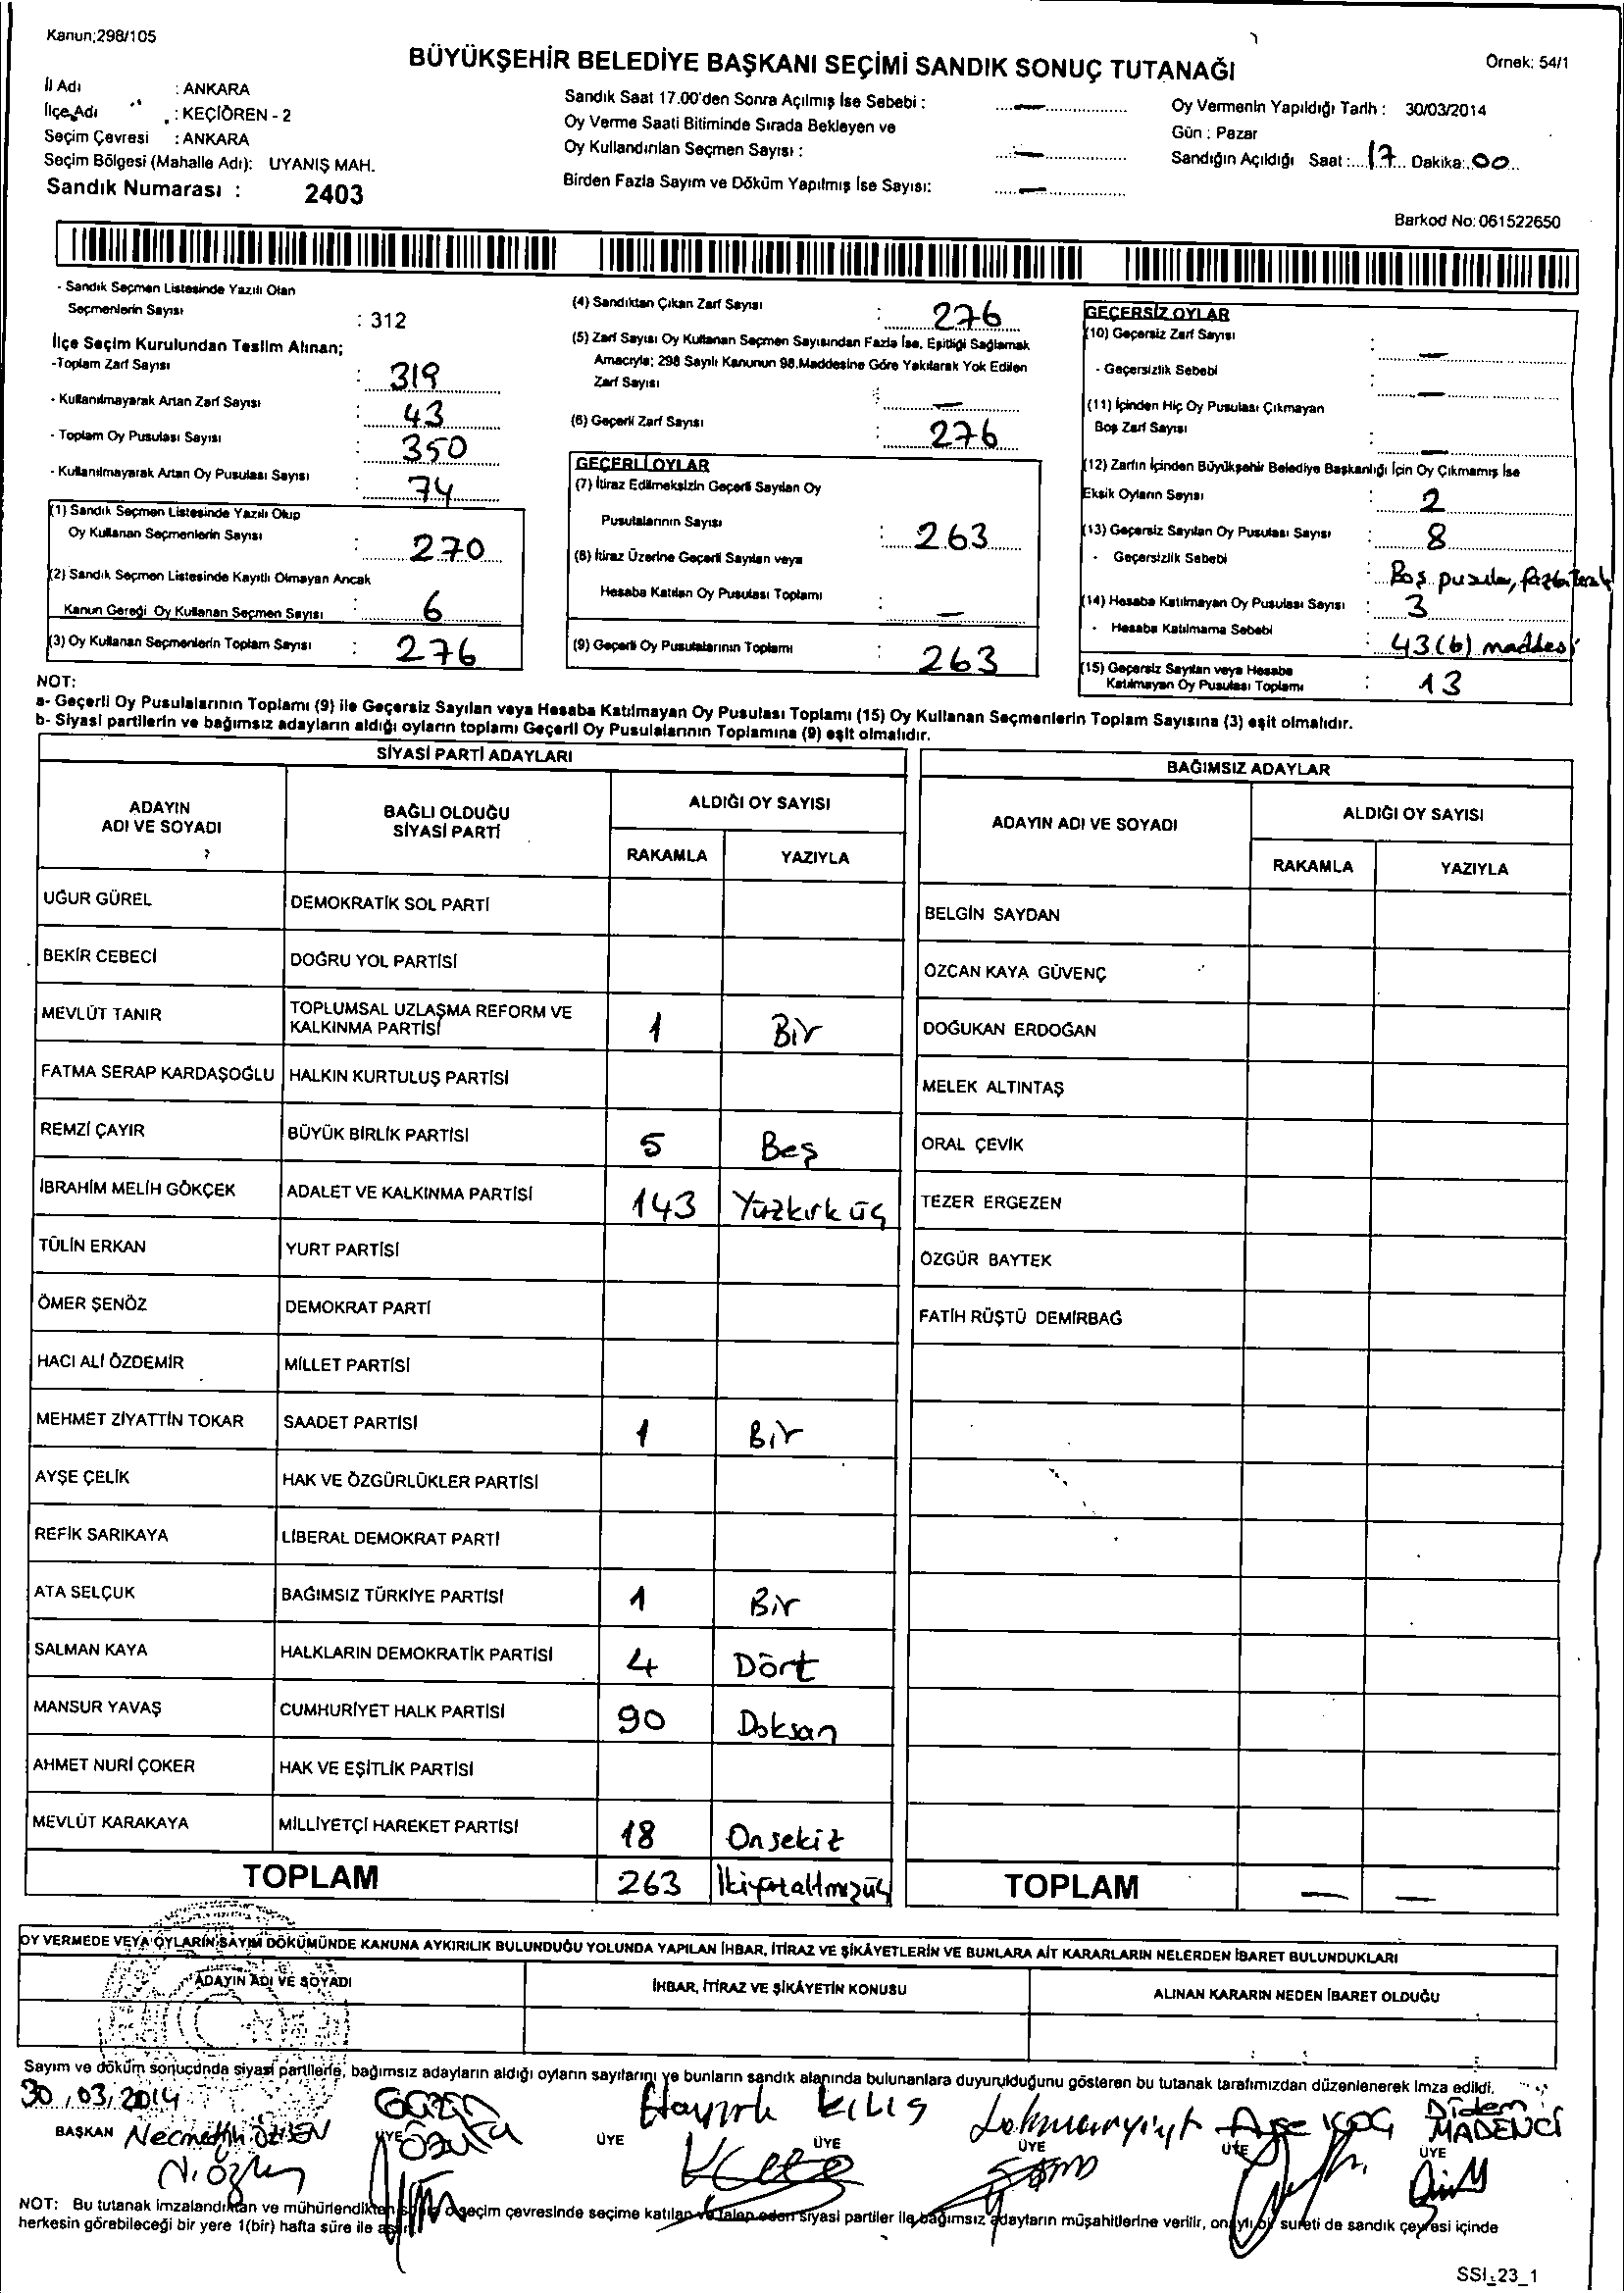 Kanun;298/105
BÜYÜKŞEHİR BELEDİYE BAŞKANI SEÇİMİ SANDIK SONUÇ TUTANAĞI
Örnek: 54/1
İl Adı : ANKARA
İlçe Adı : KEÇİÖREN - 2
Seçim Çevresi : ANKARA
Seçim Bölgesi (Mahalle Adı): UYANIŞ MAH.
Sandık Numarası : 2403
Sandık Saat 17.00'den Sonra Açılmış İse Sebebi : —
Oy Verme Saati Bitiminde Sırada Bekleyen ve
Oy Kullandırılan Seçmen Sayısı : —
Birden Fazla Sayım ve Döküm Yapılmış İse Sayısı: —
Oy Vermenin Yapıldığı Tarih : 30/03/2014
Gün : Pazar
Sandığın Açıldığı Saat : 17 Dakika: 00
Barkod No: 061522650
- Sandık Seçmen Listesinde Yazılı Olan
Seçmenlerin Sayısı : 312
İlçe Seçim Kurulundan Teslim Alınan;
-Toplam Zarf Sayısı : 319
- Kullanılmayarak Artan Zarf Sayısı : 43
- Toplam Oy Pusulası Sayısı : 350
- Kullanılmayarak Artan Oy Pusulası Sayısı : 74
(1) Sandık Seçmen Listesinde Yazılı Olup
Oy Kullanan Seçmenlerin Sayısı : 270
(2) Sandık Seçmen Listesinde Kayıtlı Olmayan Ancak
Kanun Gereği Oy Kullanan Seçmen Sayısı : 6
(3) Oy Kullanan Seçmenlerin Toplam Sayısı : 276
(4) Sandıktan Çıkan Zarf Sayısı : 276
(5) Zarf Sayısı Oy Kullanan Seçmen Sayısından Fazla İse, Eşitliği Sağlamak
Amacıyla; 298 Sayılı Kanunun 98.Maddesine Göre Yakılarak Yok Edilen
Zarf Sayısı : —
(6) Geçerli Zarf Sayısı : 276
GEÇERLİ OYLAR
(7) İtiraz Edilmeksizin Geçerli Sayılan Oy
Pusulalarının Sayısı : 263
(8) İtiraz Üzerine Geçerli Sayılan veya
Hesaba Katılan Oy Pusulası Toplamı : —
(9) Geçerli Oy Pusulalarının Toplamı : 263
GEÇERSİZ OYLAR
(10) Geçersiz Zarf Sayısı : —
- Geçersizlik Sebebi : —
(11) İçinden Hiç Oy Pusulası Çıkmayan
Boş Zarf Sayısı : —
(12) Zarfın İçinden Büyükşehir Belediye Başkanlığı İçin Oy Çıkmamış İse
Eksik Oyların Sayısı : 2
(13) Geçersiz Sayılan Oy Pusulası Sayısı : 8
- Geçersizlik Sebebi : Boş pusula,
(14) Hesaba Katılmayan Oy Pusulası Sayısı : 3
- Hesaba Katılmama Sebebi : 43(b) maddesi
(15) Geçersiz Sayılan veya Hesaba
Katılmayan Oy Pusulası Toplamı : 13
NOT:
a- Geçerli Oy Pusulalarının Toplamı (9) ile Geçersiz Sayılan veya Hesaba Katılmayan Oy Pusulası Toplamı (15) Oy Kullanan Seçmenlerin Toplam Sayısına (3) eşit olmalıdır.
b- Siyasi partilerin ve bağımsız adayların aldığı oyların toplamı Geçerli Oy Pusulalarının Toplamına (9) eşit olmalıdır.
SİYASİ PARTİ ADAYLARI
ADAYIN ADI VE SOYADI | BAĞLI OLDUĞU SİYASİ PARTİ | ALDIĞI OY SAYISI
RAKAMLA | YAZIYLA
UĞUR GÜREL | DEMOKRATİK SOL PARTİ
BEKİR CEBECİ | DOĞRU YOL PARTİSİ
MEVLÜT TANIR | TOPLUMSAL UZLAŞMA REFORM VE KALKINMA PARTİSİ | 1 | Bir
FATMA SERAP KARDAŞOĞLU | HALKIN KURTULUŞ PARTİSİ
REMZİ ÇAYIR | BÜYÜK BİRLİK PARTİSİ | 5 | Beş
İBRAHİM MELİH GÖKÇEK | ADALET VE KALKINMA PARTİSİ | 143 | Yüzkırk üç
TÜLİN ERKAN | YURT PARTİSİ
ÖMER ŞENÖZ | DEMOKRAT PARTİ
HACI ALİ ÖZDEMİR | MİLLET PARTİSİ
MEHMET ZİYATTİN TOKAR | SAADET PARTİSİ | 1 | Bir
AYŞE ÇELİK | HAK VE ÖZGÜRLÜKLER PARTİSİ
REFİK SARIKAYA | LİBERAL DEMOKRAT PARTİ
ATA SELÇUK | BAĞIMSIZ TÜRKİYE PARTİSİ | 1 | Bir
SALMAN KAYA | HALKLARIN DEMOKRATİK PARTİSİ | 4 | Dört
MANSUR YAVAŞ | CUMHURİYET HALK PARTİSİ | 90 | Doksan
AHMET NURİ ÇOKER | HAK VE EŞİTLİK PARTİSİ
MEVLÜT KARAKAYA | MİLLİYETÇİ HAREKET PARTİSİ | 18 | Onsekiz
TOPLAM | 263
BAĞIMSIZ ADAYLAR
ADAYIN ADI VE SOYADI | ALDIĞI OY SAYISI
RAKAMLA | YAZIYLA
BELGİN SAYDAN
ÖZCAN KAYA GÜVENÇ
DOĞUKAN ERDOĞAN
MELEK ALTINTAŞ
ORAL ÇEVİK
TEZER ERGEZEN
ÖZGÜR BAYTEK
FATİH RÜŞTÜ DEMİRBAĞ
TOPLAM | — | —
OY VERMEDE VEYA OYLARIN SAYIM DÖKÜMÜNDE KANUNA AYKIRILIK BULUNDUĞU YOLUNDA YAPILAN İHBAR, İTİRAZ VE ŞİKÂYETLERİN VE BUNLARA AİT KARARLARIN NELERDEN İBARET BULUNDUKLARI
ADAYIN ADI VE SOYADI | İHBAR, İTİRAZ VE ŞİKÂYETİN KONUSU | ALINAN KARARIN NEDEN İBARET OLDUĞU
Sayım ve döküm sonucunda siyasi partilerle, bağımsız adayların aldığı oyların sayılarını ve bunların sandık alanında bulunanlara duyurulduğunu gösteren bu tutanak tarafımızdan düzenlenerek imza edildi.
30/03/2014
BAŞKAN Necmettin ÖZŞEN
ÜYE
ÜYE KILIÇ
ÜYE
ÜYE
ÜYE Ayşe
ÜYE Didem MADENCİ
NOT: Bu tutanak imzalandıktan ve mühürlendikten sonra o seçim çevresinde seçime katılan ve talep eden siyasi partiler ile bağımsız adayların müşahitlerine verilir, onaylı bir sureti de sandık çevresi içinde
herkesin görebileceği bir yere 1(bir) hafta süre ile asılır.
SSI_23_1